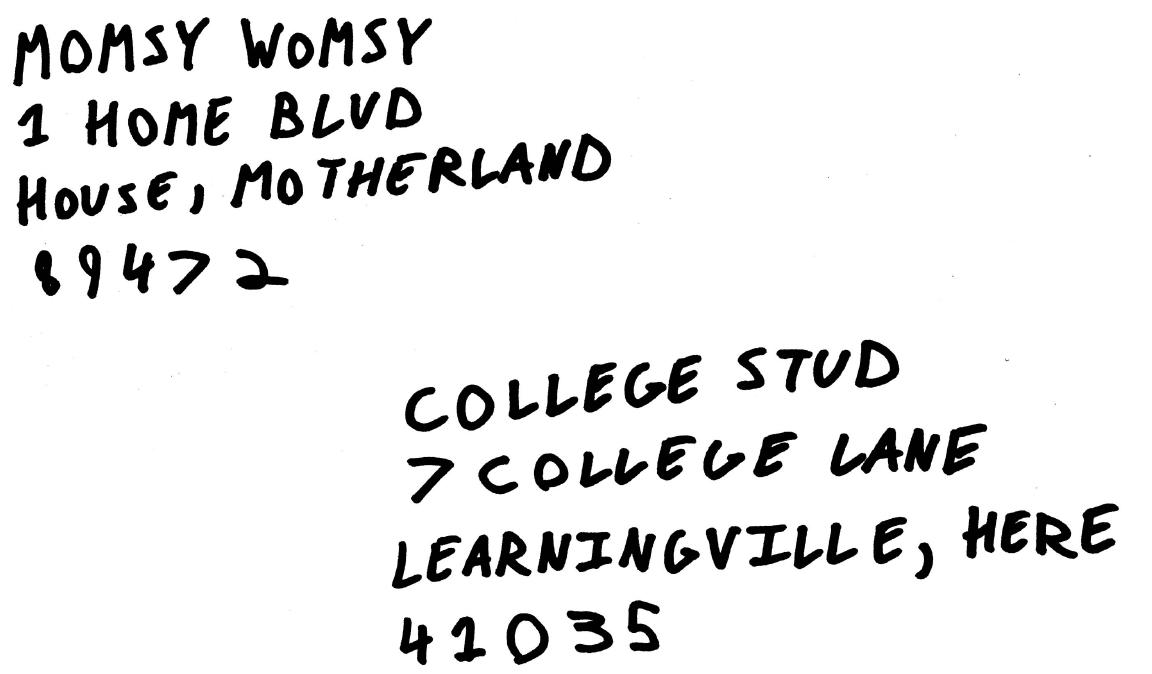 MOMSY WOMSY
1 HOME BLVD
HOUSE, MOTHERLAND
89472
COLLEGE STUD
7 COLLEGE LANE
LEARNINGVILLE, HERE
41035